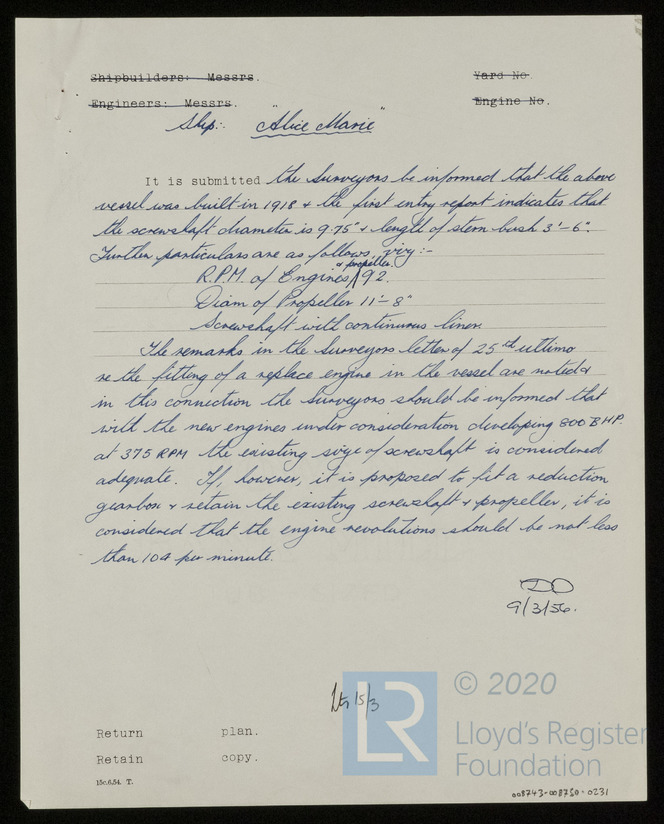 Shipbuilders: Messrs.
Yard No.
Engineers: Messrs.
Engine No.
Ship: "Alice Marie"
It is submitted the Surveyors be informed that the above
vessel was built in 1918 & the first entry report indicates that
the screwshaft diameter is 9.75" & length of stern bush 3'-6".
Further particulars are as follows, viz:-
R.P.M. of Engines & propeller 92.
Diam of Propeller 11'-8"
Screwshaft with continuous liner.
The remarks in the Surveyors letter of 25th ultimo
re the fitting of a replace engine in the vessel are noted &
in this connection the Surveyors should be informed that
with the new engines under consideration developing 800 BHP.
at 375 RPM the existing size of screwshaft is considered
adequate. If, however, it is proposed to fit a reduction
gearbox & retain the existing screwshaft & propeller, it is
considered that the engine revolutions should be not less
than 104 per minute.
DO
9/3/56.
Ltr 15/3
Return plan.
Retain copy.
15c.6.54. T.
LR
© 2020
Lloyd's Register
Foundation
008743-008750-0231